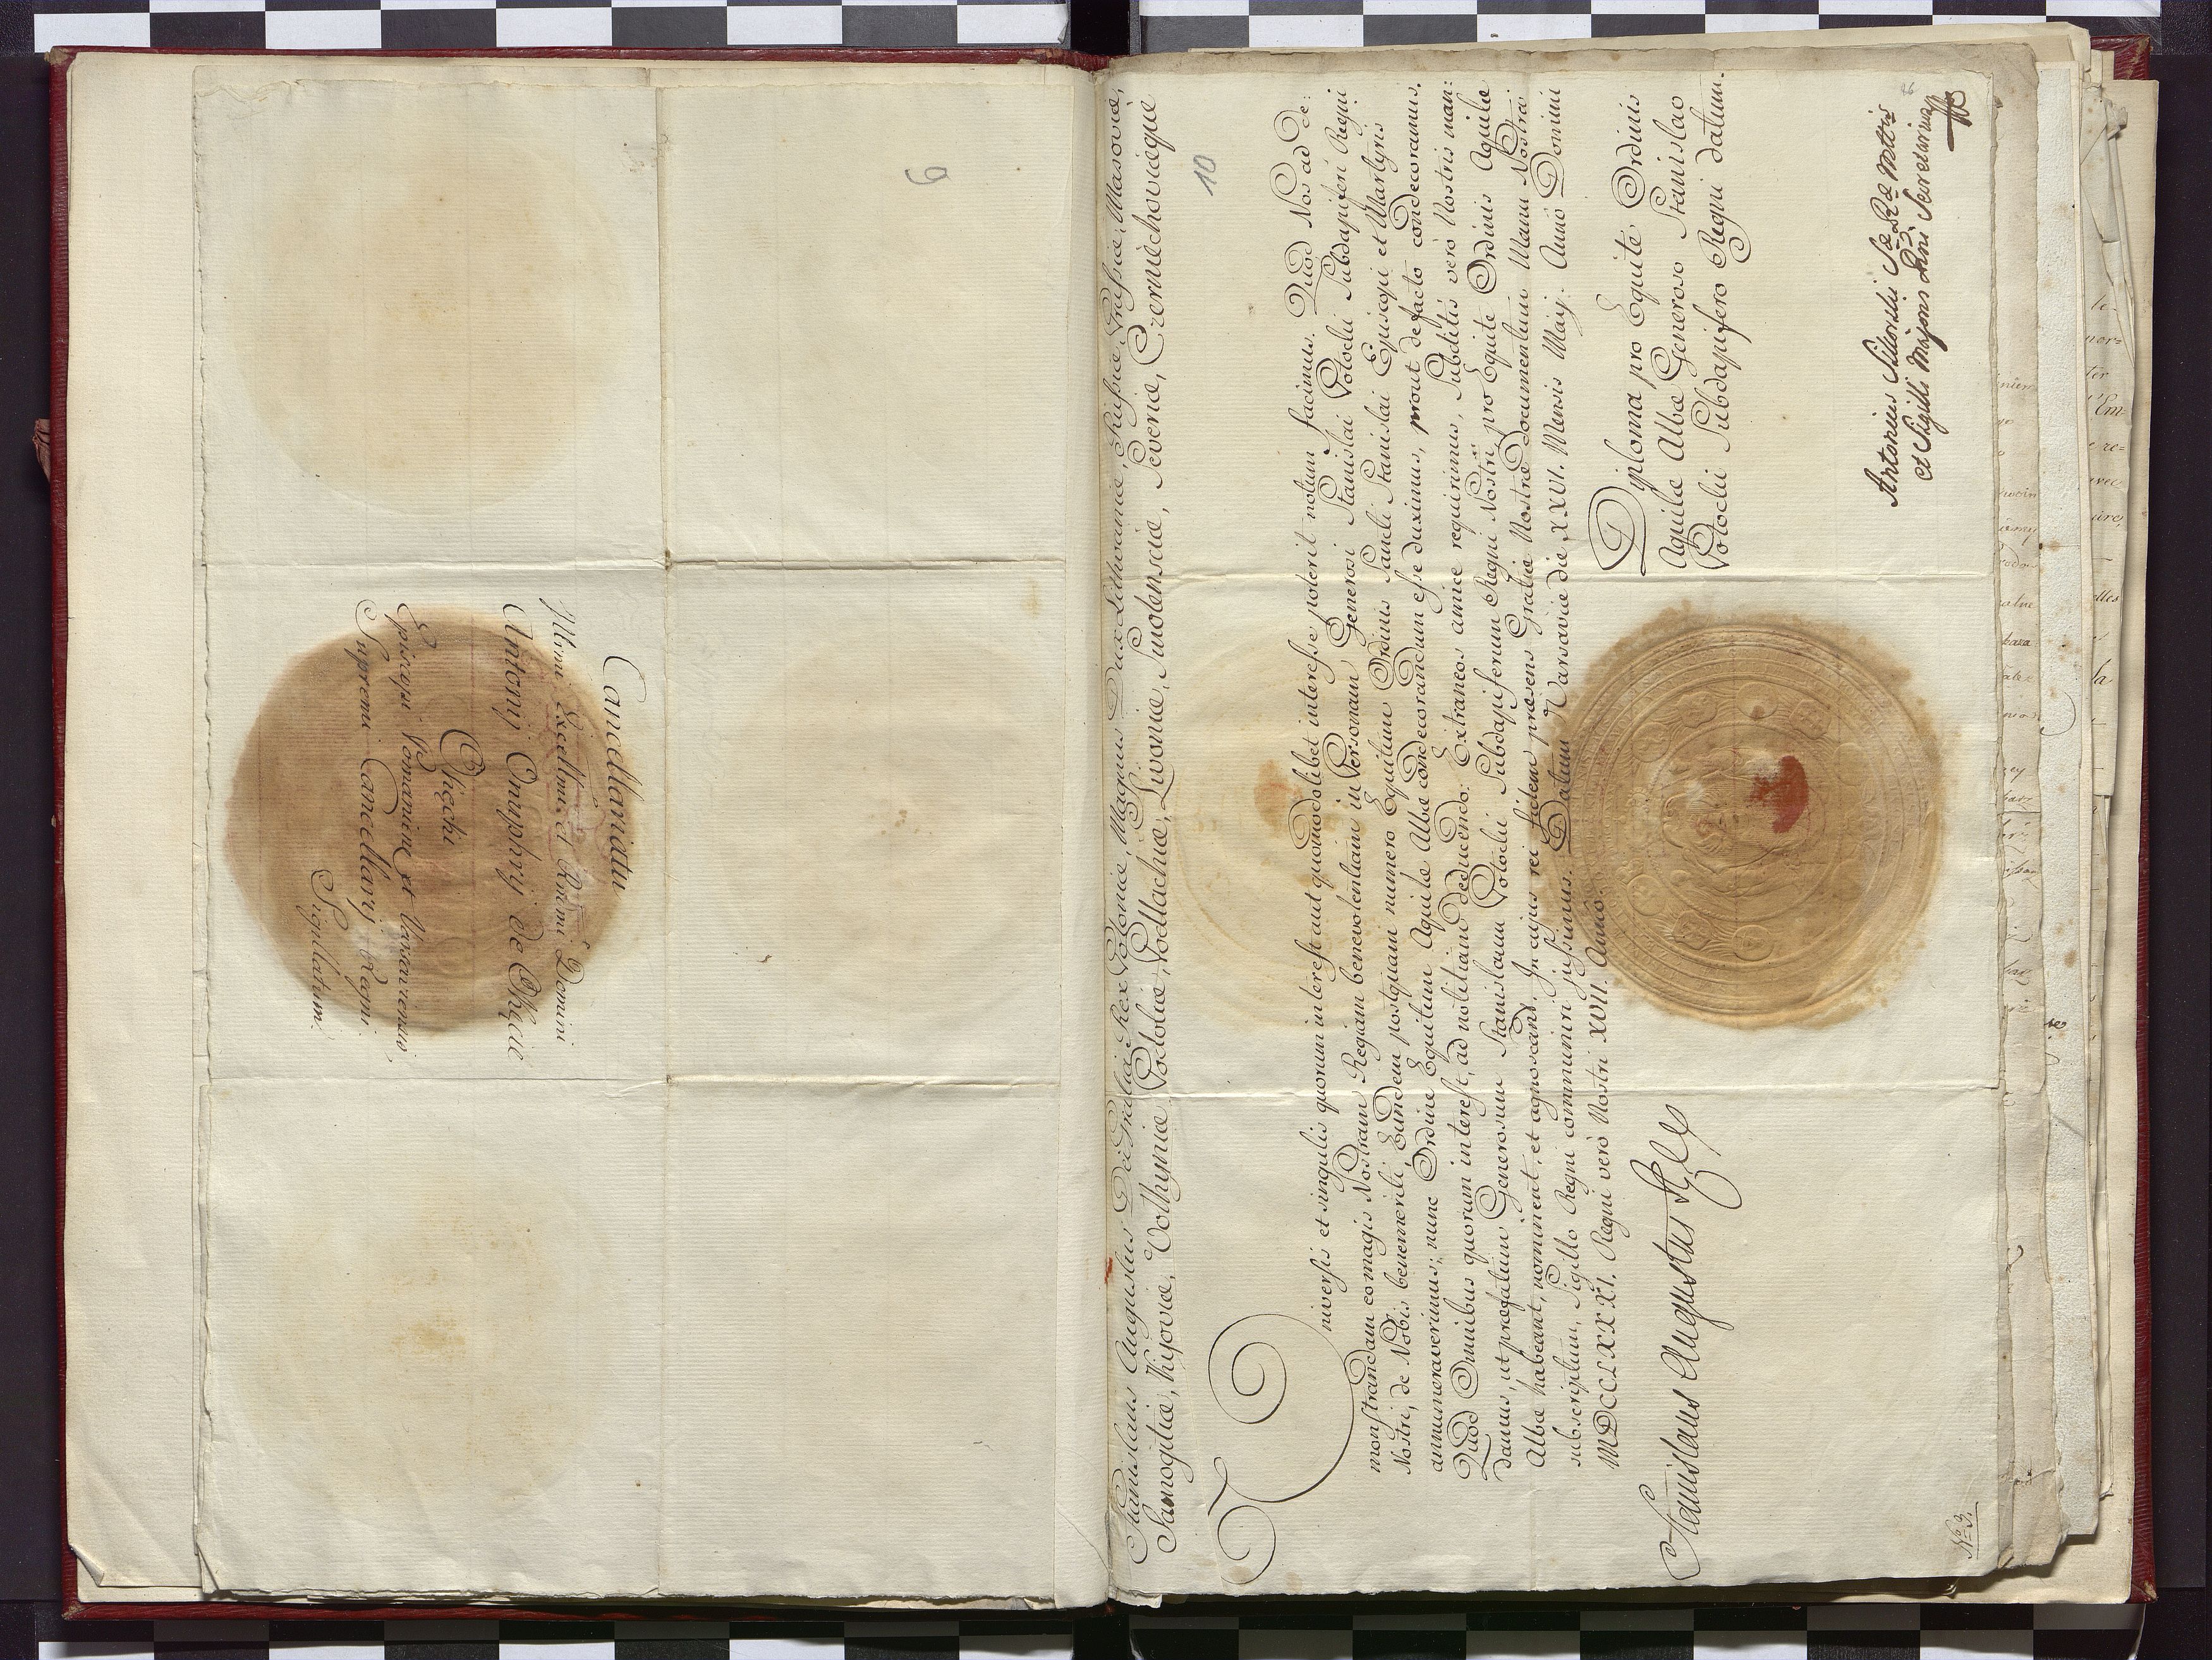 9
Cancellariatu
Illmi Excellmi et Rndmi Domini
Antonij Onuphrij de Okęcie
Okęcki
Episcopi Posnaniens: et Varsaviensis,
Supremi Cancellarij Regni.
Sigillatum.
10
Stanislaus Augustus Dei Gratia Rex Poloniæ, Magnus Dux Lithvaniæ, Russiæ, Prussiæ, Masoviæ,
Samogitiæ, Kijoviæ, Volhyniæ, Podoliæ, Podlachiæ, Livoniæ, Smolensciæ, Severiæ, Czerniechoviæque
Universis et singulis quorum interest aut quomodolibet interesse poterit notum facimus. Quod Nos ad de:
monstrandam eo magis Nostram Regiam benevolentiam in Personam Generosi Stanislai Potocki Subdapiferi Regni
Nostri, de Nobis benemeriti, Eundem postquam numero Equitum Ordinis Sancti Stanislai Episcopi et Martyris
annumeraverimus; nunc Ordine Equitum Aquilæ Albæ condecorandum esse duximus, prout de facto condecoramus.
Quod Omnibus quorum interest, ad notitiam deducendo: Extraneos amice requirimus, Subditis verò Nostris man:
damus, ut præfatum Generosum Stanislaum Potocki Subdapiferum Regni Nostri, pro Equite Ordinis Aquilæ
Albæ habeant, nominent, et agnoscant. In cujus rei fidem præsens Gratiæ Nostræ Documentum Manu Nostra
subscriptum, Sigillo Regni communiri jussimus. Datum Varsaviæ die XXVI. Mensis Maij. Anno Domini
MDCCLXXXI. Regni verò Nostri XVII. Anno.
Stanislaus Augustus Rex
Diploma pro Equite Ordinis
Aquilæ Albæ Generoso Stanislao
Potocki Subdapifero Regni datum.
Antonius Sikorski Sæ Ræ Mttis
et Sigilli Majoris Rni Secretarius
mp
No 3.